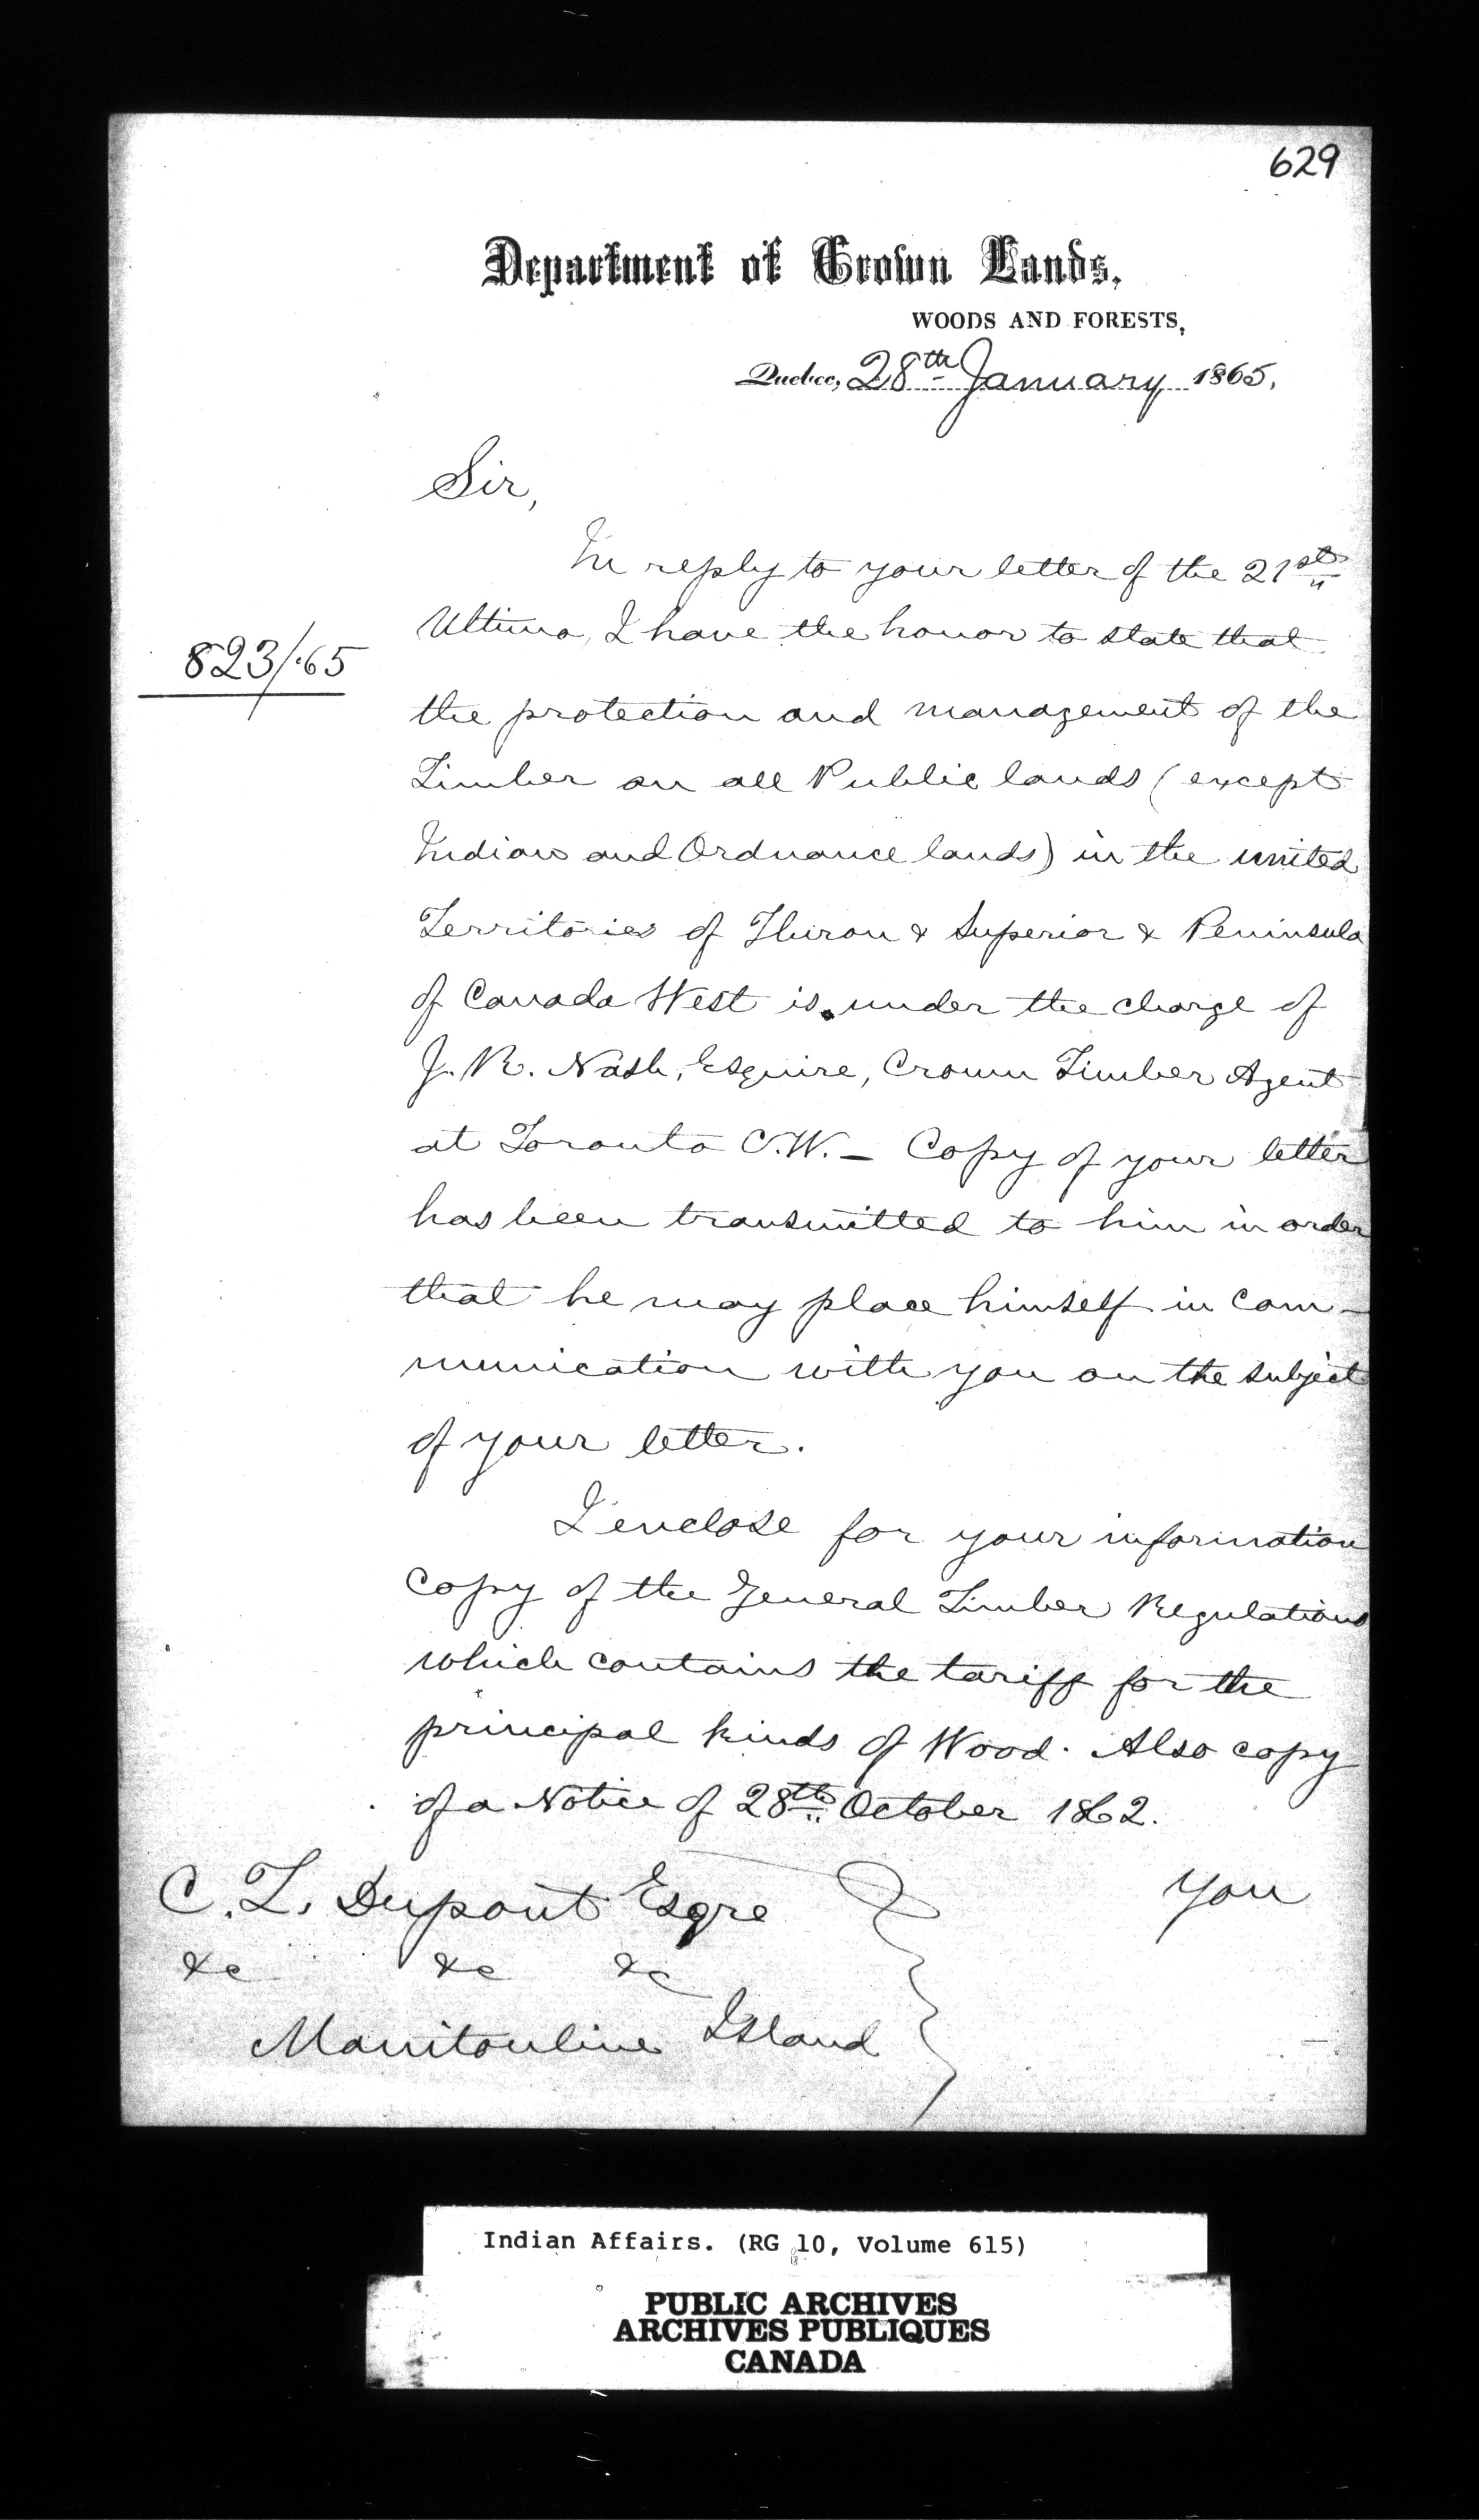 629
Department of Crown Lands,
WOODS AND FORESTS,
Quebec, 28th January 1865.
Sir,
In reply to your letter of the 21st
Ultimo, I have the honor to state that
823/65
the protection and management of the
Timber on all Public lands (except
Indian and Ordnance lands) in the united
Territories of Huron & Superior & Peninsula
of Canada West is under the charge of
J. R. Nash, Esquire, Crown Timber Agent
at Toronto C.W. – Copy of your letter
has been transmitted to him in order
that he may place himself in com-
munication with you on the subject
of your letter.
I enclose for your information
Copy of the General Timber Regulations
which contains the tariff for the
principal kinds of Wood. Also copy
of a Notice of 28th October 1862.
You
C. T. Dupont Esqre
&c &c &c
Manitouline Island
Indian Affairs. (RG 10, Volume 615)
PUBLIC ARCHIVES
ARCHIVES PUBLIQUES
CANADA